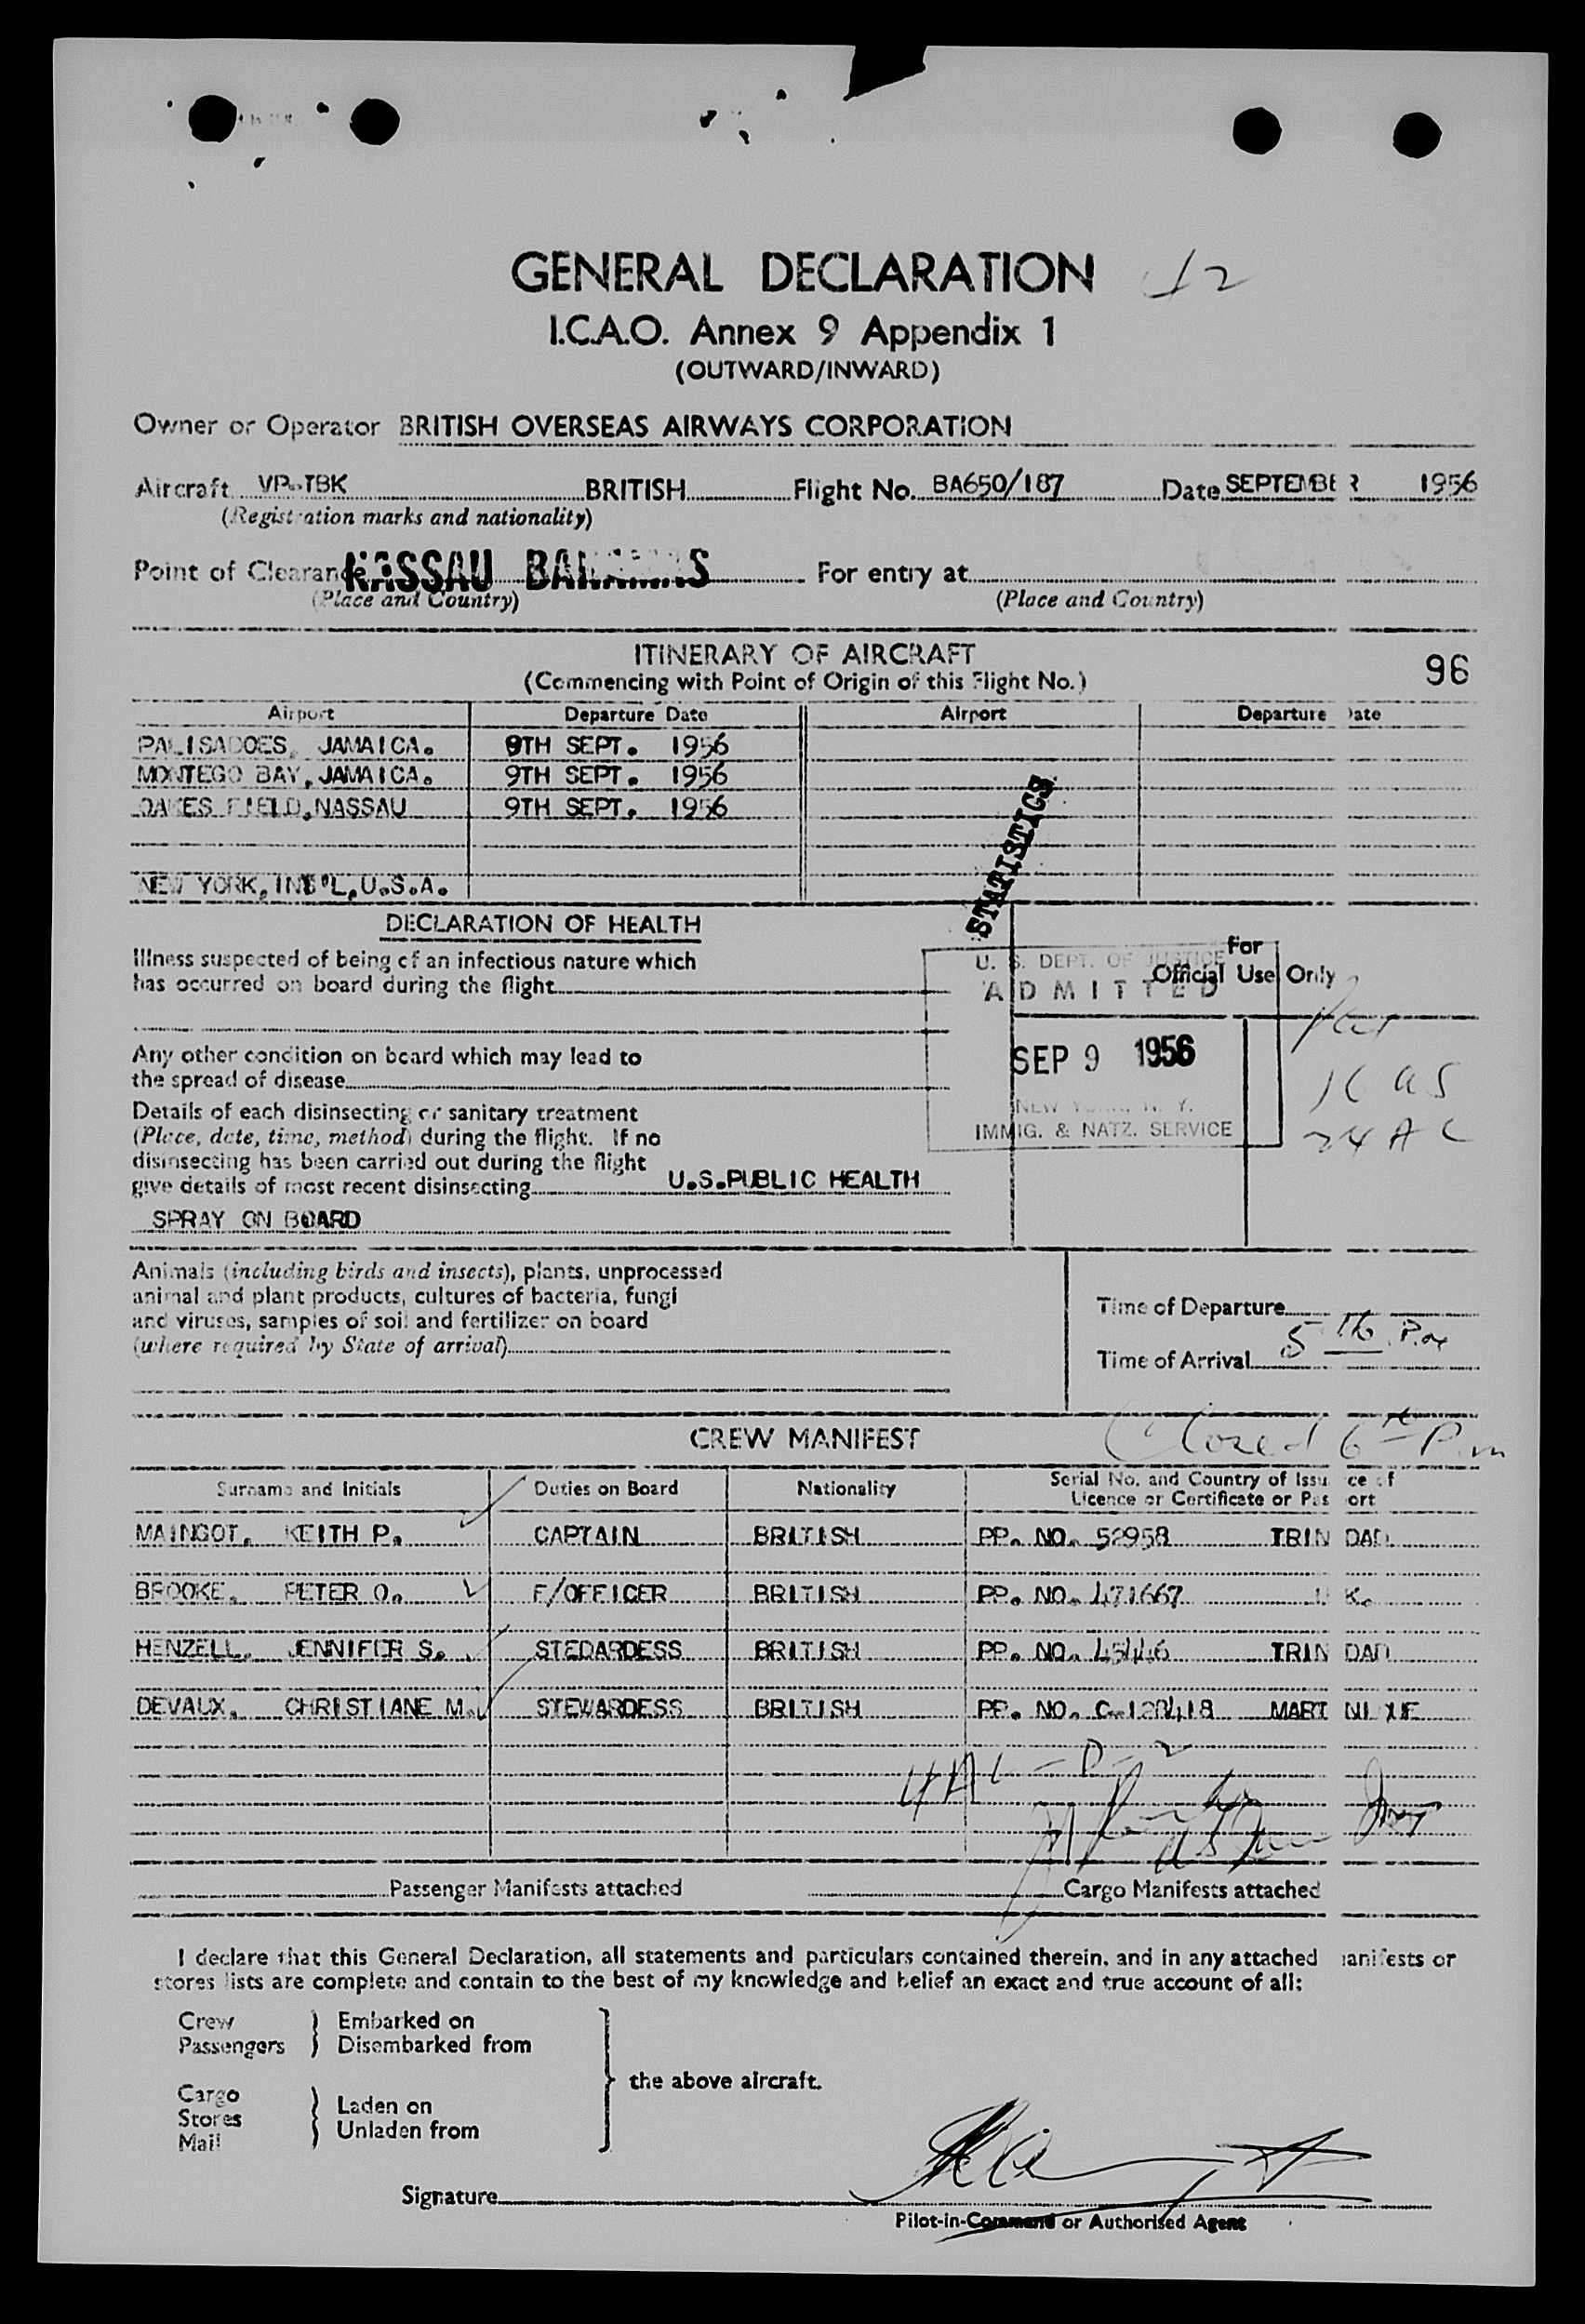 GENERAL DECLARATION 42
I.C.A.O. Annex 9 Appendix 1
(OUTWARD/INWARD)
Owner or Operator BRITISH OVERSEAS AIRWAYS CORPORATION
Aircraft VP-TBK BRITISH Flight No. BA650/187 Date SEPTEMBER 1956
(Registration marks and nationality)
Point of Clearance NASSAU BAHAMAS For entry at
(Place and Country) (Place and Country)
ITINERARY OF AIRCRAFT
(Commencing with Point of Origin of this Flight No.) 96
Airport Departure Date Airport Departure Date
PALISADOES, JAMAICA. 9TH SEPT. 1956
MONTEGO BAY, JAMAICA. 9TH SEPT. 1956
OAKES FIELD, NASSAU 9TH SEPT. 1956
STATISTICS
NEW YORK, INT'L, U.S.A.
DECLARATION OF HEALTH
Illness suspected of being of an infectious nature which
has occurred on board during the flight
For
Official Use Only
U. S. DEPT. OF JUSTICE
ADMITTED
SEP 9 1956
NEW YORK, N. Y.
IMMIG. & NATZ. SERVICE
Any other condition on board which may lead to
the spread of disease
Details of each disinsecting or sanitary treatment
(Place, date, time, method) during the flight. If no
disinsecting has been carried out during the flight
give details of most recent disinsecting U.S.PUBLIC HEALTH
SPRAY ON BOARD
Animals (including birds and insects), plants, unprocessed
animal and plant products, cultures of bacteria, fungi
and viruses, samples of soil and fertilizer on board
(where required by State of arrival)
Time of Departure
Time of Arrival 5 16 P.M
CREW MANIFEST Closed 6 P.m
Surname and Initials Duties on Board Nationality Serial No. and Country of Issuance of
Licence or Certificate or Passport
MAINGOT, KEITH P. CAPTAIN BRITISH PP. NO. 52958 TRINIDAD
BROOKE, PETER O. F/OFFICER BRITISH PP. NO. 471667 U.K.
HENZELL, JENNIFER S. STEDARDESS BRITISH PP. NO. 45446 TRINIDAD
DEVAUX, CHRISTIANE M. STEWARDESS BRITISH PP. NO. C-128418 MARTINIXUE
Passenger Manifests attached Cargo Manifests attached
I declare that this General Declaration, all statements and particulars contained therein, and in any attached manifests or
stores lists are complete and contain to the best of my knowledge and belief an exact and true account of all:
Crew Embarked on
Passengers Disembarked from
the above aircraft.
Cargo
Stores Laden on
Mail Unladen from
Signature
Pilot-in-Command or Authorised Agent